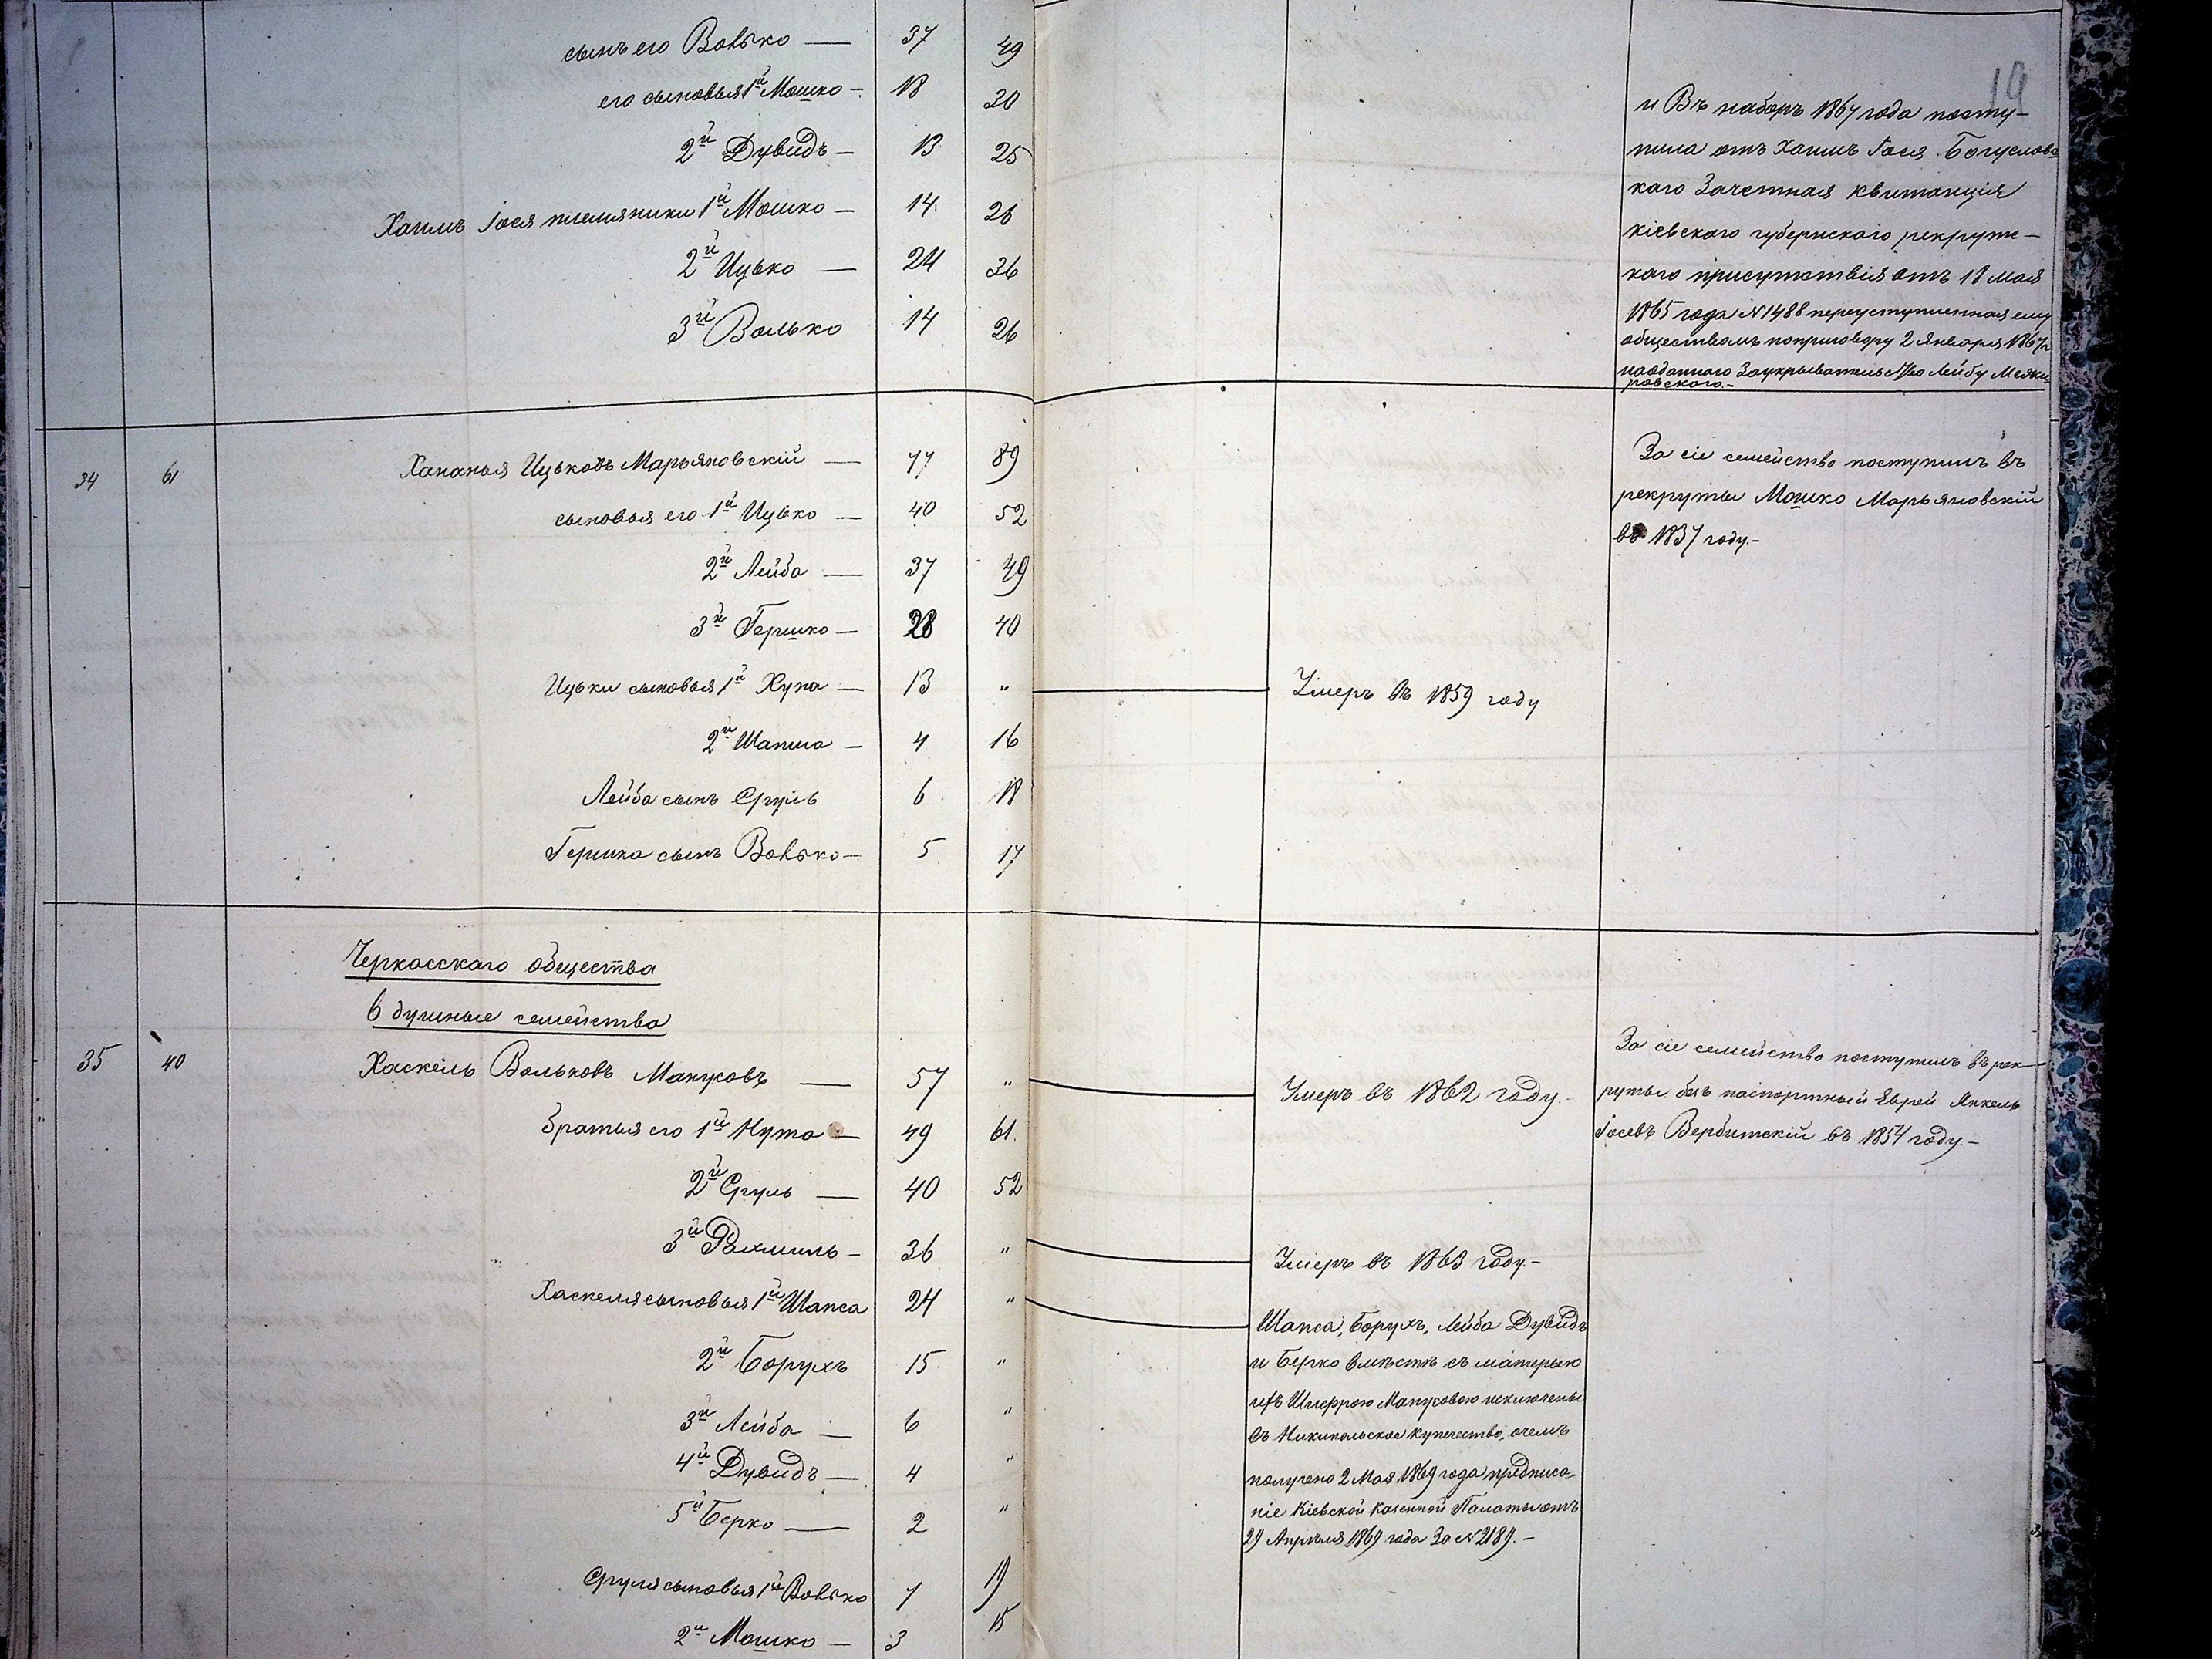 19
сынъ его Вовько — 37 49
его сыновья 1й Мошко — 18 30
2й Дувидъ — 13 25
Хаимъ Іося племяники 1й Мошко — 14 26
2й Ицько — 24 36
3й Волько 14 26
и Въ наборъ 1867 года посту-
пила отъ Хаимъ Іося Богуславс
каго Зачетная квитанція
Кіевскаго губернскаго рекрутс-
каго присутствія отъ 18 мая
1865 года № 1488 переуступленная ему
обществомъ поприговору 2 Января 1867 г
за отданнаго Лейбу
ровскаго. —
34 61 Хананья Ицьковъ Марьяновскій — 77 89
сыновья его 1й Ицько — 40 52
2й Лейба — 37 49
3й Гершко — 28 40
Ицьки сыновья 1й Хуна — 13 " Умеръ въ 1859 году
2й Шапша — 4 16
Лейба сынъ Сруль 6 18
Гершка сынъ Вовько — 5 17
За сіе семейство поступилъ въ
рекруты Мошко Марьяновскій
въ 1837 году. —
Черкасскаго общества
6 душные семейства
35 40 Хаскель Вольковъ Манусовъ — 57 " Умеръ въ 1862 году. —
братья его 1й Нута — 49 61.
2й Сруль — 40 52
3й Рахмиль — 36 " Умеръ въ 1863 году. —
Хаскеля сыновья 1й Шапса 24 "
2й Борухъ 15 "
3й Лейба — 6 "
4й Дувидъ — 4 "
5й Берко — 2 "
Сруля сыновья 1й Вовько 7 19
2й Мошко — 3 15
Шапса, Борухъ, Лейба Дувидъ
и Берко вместѣ съ матерью
ихъ Шифрою Манусовою исключены
въ Никипольское купечество, очемъ
получено 2 Мая 1869 года предписа-
ніе Кіевской Казенной Палаты отъ
29 Апрѣля 1869 года За № 2189. —
За сіе семейство поступилъ въ рек-
руты безъ паспортный Еврей Янкель
Іосевъ Вербитскій въ 1854 году. —